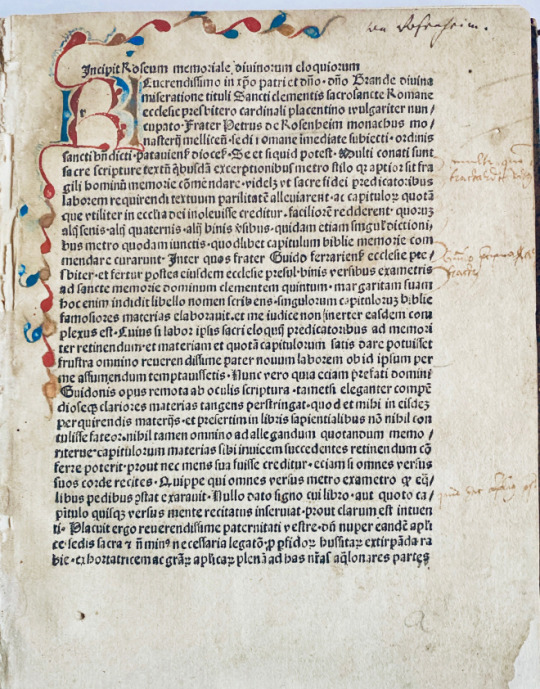 von Rosenheim.
Incipit Roseum memoriale diuinorum eloquiorum
Reuerendissimo in xpo patri et dño · dño Brande diuina
miseratione tituli Sancti clementis sacrosancte Romane
ecclesie presbitero cardinali placentino vulgariter nun /
cupato · Frater Petrus de Rosenheim monachus mo /
nasterij mellicen̄ · sedi romane imediate subiecti · ordinis
sancti bn̄dicti · patauien̄ dioces̄ · Se et siquid potest · Multi conati sunt
sacre scripture textū quibusdā exceptionibus metro stilo
gili hominū memorie cōmendare · videlz vt sacre fidei predicatoribus
laborem requirendi textuum parilitatē alleuiarent · ac capitulorum quotā
que vtiliter in ecclesia dei inoleuisse creditur · faciliorē redderent · quorum
alij senis · alij quaternis · alij binis versibus · quidam etiam singulis dictioni /
bus metro quodam iunctis · quodlibet capitulum biblie memorie com /
mendare curarunt · Inter quos frater Guido ferrarien̄ ecclesie pre /
sbiter · et fertur postea eiusdem ecclesie presul · binis versibus exametris
ad sancte memorie dominum clementem quintum · margaritam suam
hoc enim indidit libello nomen scribens · singulorum capitulorum biblie
famosiores materias elaborauit · et me iudice non inerter easdem com /
plexus est · Cuius si labor ipsis sacri eloquij predicatoribus ad memori /
ter retinendum · et materiam et quotā capitulorum satis dare potuisset
frustra omnino reuerendissime pater nouum laborem ob id ipsum per
me assumendum temptauissetis · Nunc vero quia eciam prefati domini
Guidonis opus remota ab oculis scriptura · tametsi eleganter compē
diosecz clariores materias tangens perstringat · quod et mihi in eisdez
perquirendis materijs · et presertim in libris sapientialibus nō nihil con
tulisse fateor · nihil tamen omnino ad allegandum quotandum memo /
riterue capitulorum materias sibi inuicem succedentes retinendum cō
ferre poterit · prout nec mens sua fuisse creditur · etiam si omnes versus
suos corde recites · Quippe qui omnes versus metro exametro
libus pedibus pstat exarauit · Nullo dato signo cui libro · aut quoto ca /
pitulo quisque versus mente recitatus inseruiat · prout clarum est intuen
ti · Placuit ergo reuerendissime paternitati vestre · dn̄ nuper eandē apli
ce sedis sacra necessaria legatōe hussitar̄ extirpāda ra
bie · exhortatricem ac